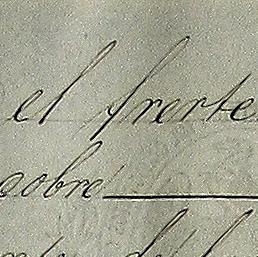 el frente
sobre